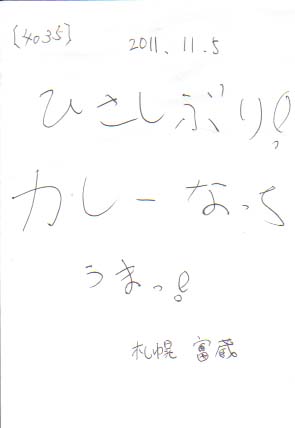 [4035]
2011.11.5
ひさしぶり!
カレーなっち
うまっ!
札幌 富蔵